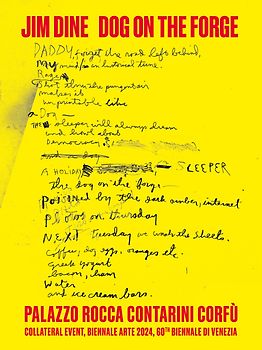 JIM DINE DOG ON THE FORGE
DADDY, forget the road left behind,
MY mind is in historical time.
Rage
Shot thru the pungent air
makes it
unprintable like
a Dog —
THE sleeper will always dream
and howl about
Democracy
A HOLIDAY — SLEEPER
the dog on the forge —
Poisoned by the dark amber, internet
Photos on Thursday
N.E.X.T Tuesday we wash the sheets.
Coffee, dog eggs. oranges etc.
Greek yogurt
bacon, ham
Water
and ice cream bars.
PALAZZO ROCCA CONTARINI CORFÙ
COLLATERAL EVENT, BIENNALE ARTE 2024, 60TH BIENNALE DI VENEZIA